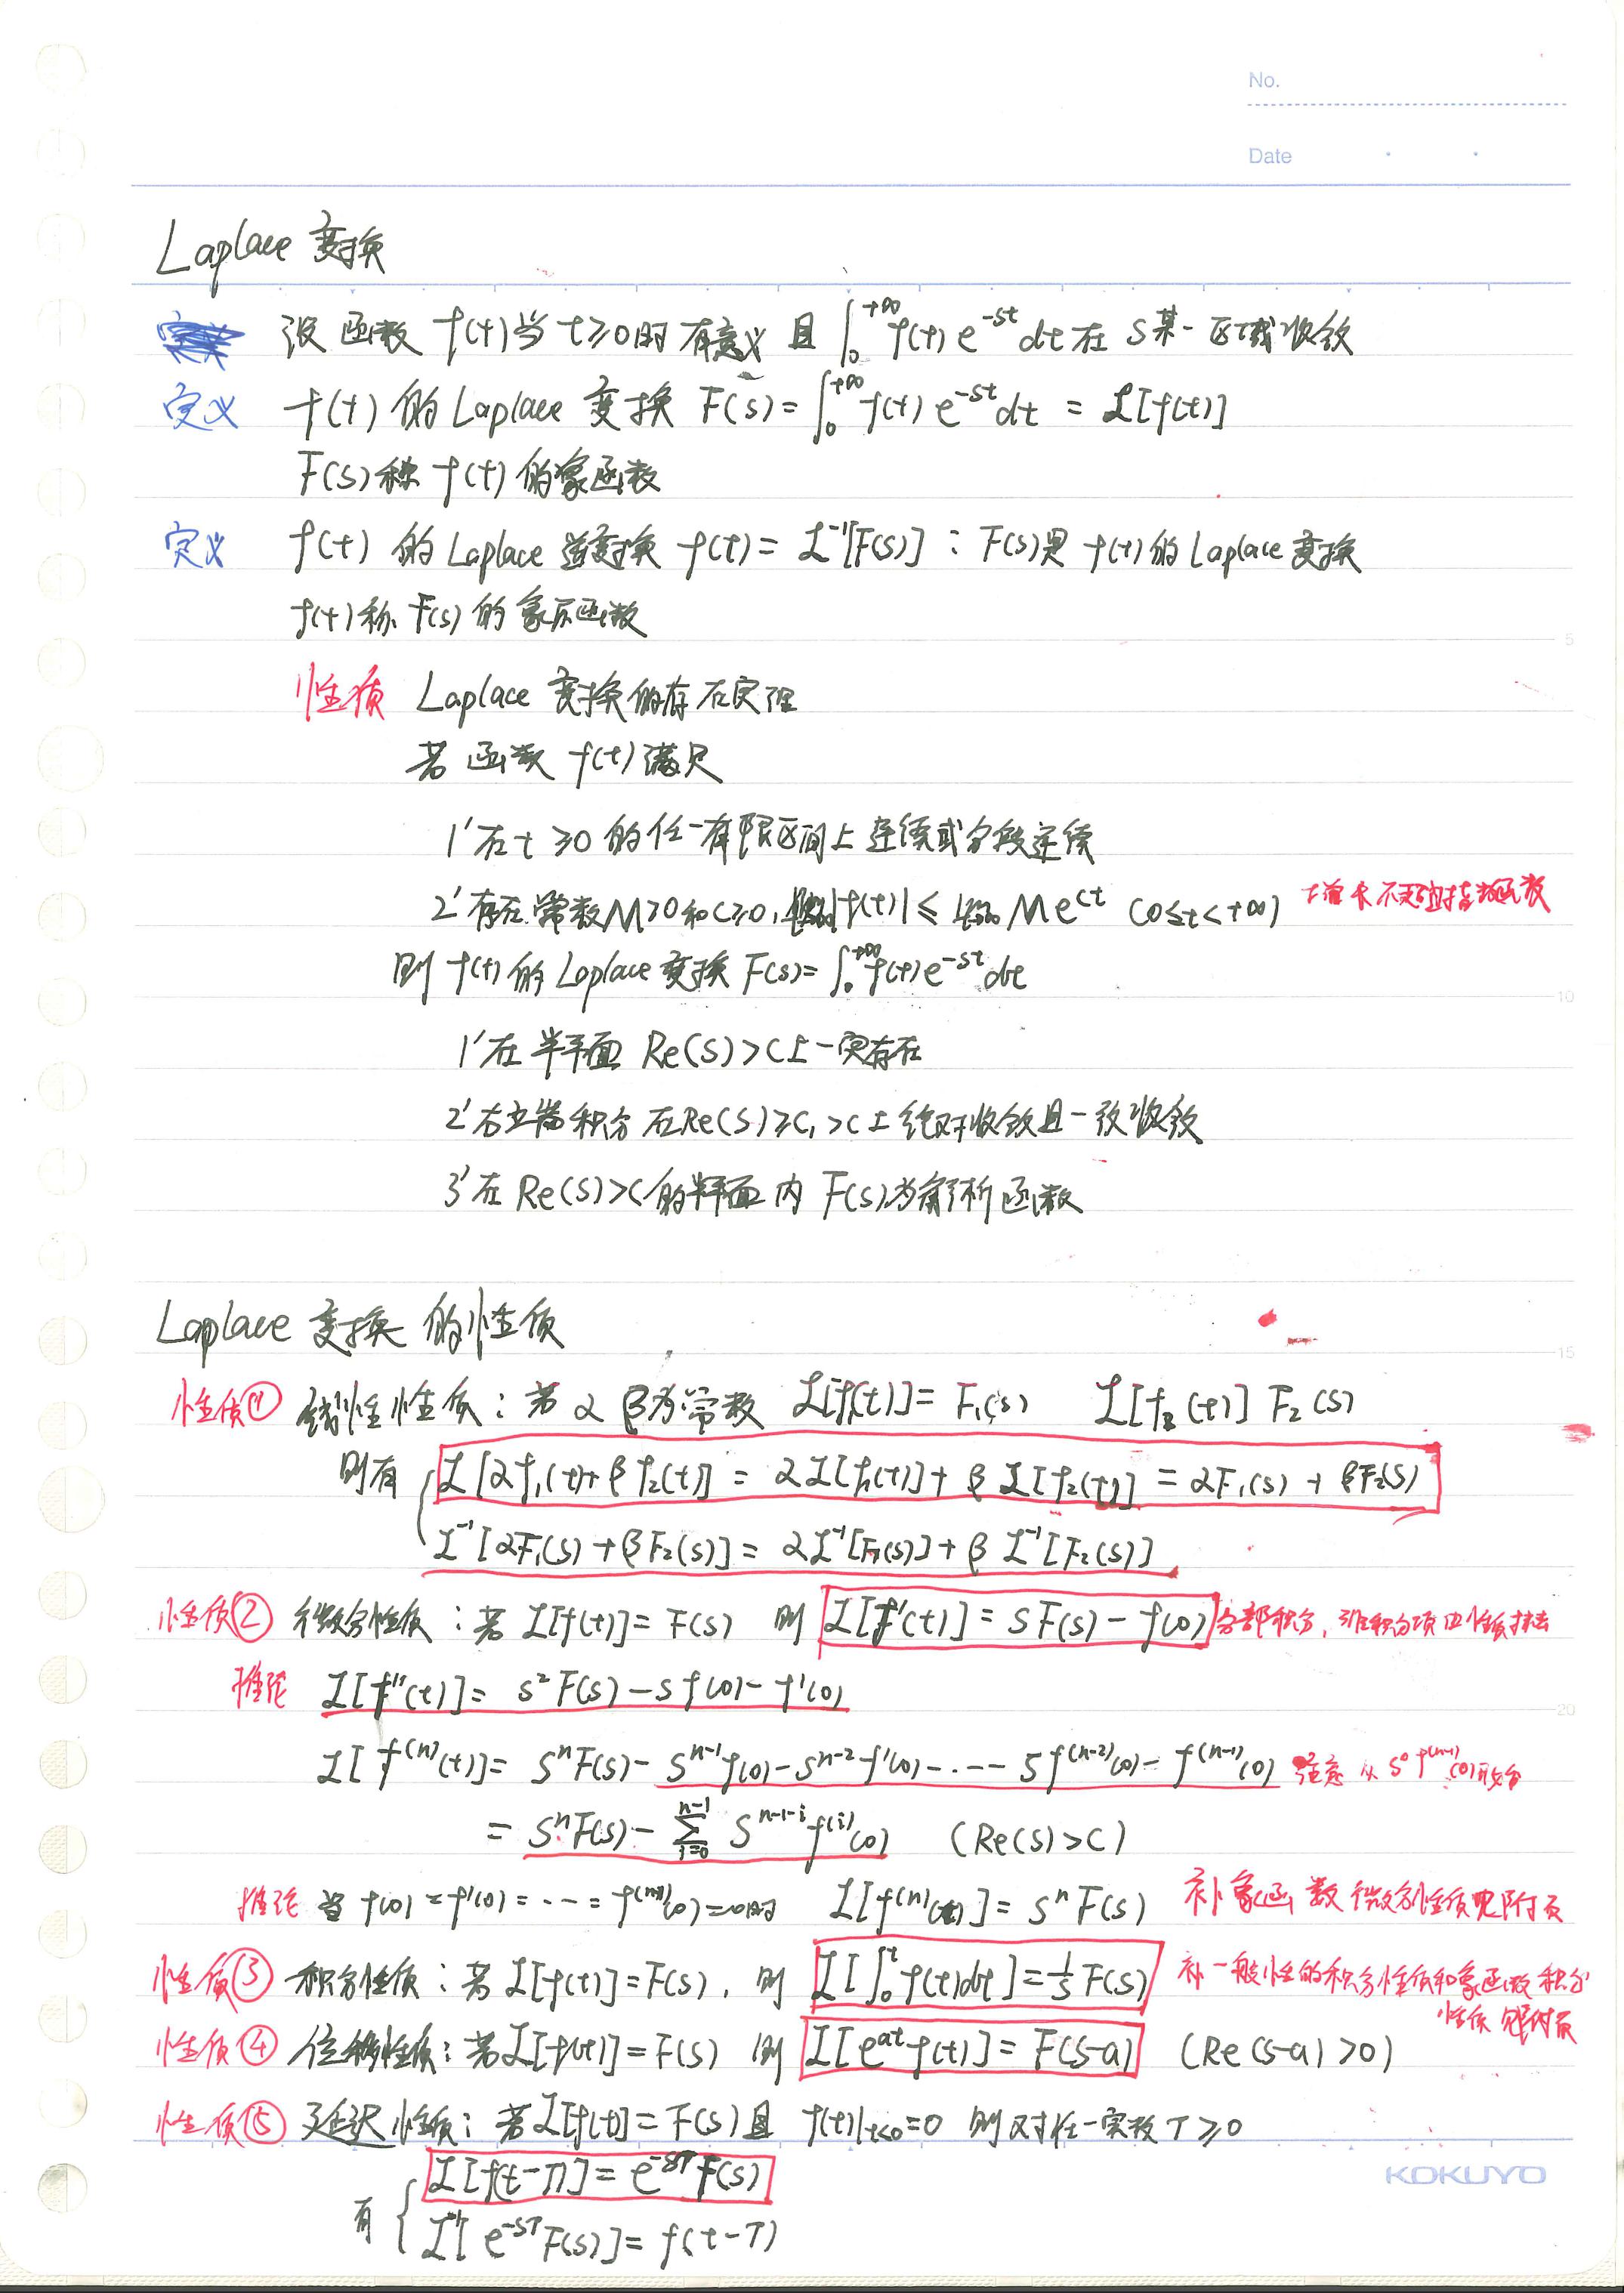 No.
Date
Laplace 变换
设函数 f(t)当 t≥0时有意义 且 ∫₀^{+∞} f(t) e^{-st} dt 在 s某一区域收敛
定义 f(t) 的 Laplace 变换 F(s) = ∫₀^{+∞} f(t) e^{-st} dt = ℒ[f(t)]
F(s)称 f(t) 的象函数
定义 f(t) 的 Laplace 逆变换 f(t) = ℒ⁻¹[F(s)] : F(s)是 f(t)的 Laplace 变换
f(t)称 F(s) 的象原函数
5
性质 Laplace 变换的存在定理
若函数 f(t)满足
1' 在 t ≥0 的任一有限区间上连续或分段连续
2' 存在常数M>0和c≥0, |f(t)| ≤ Me^{ct} (0≤t<+∞) 增长不超过指数函数
则 f(t) 的 Laplace 变换 F(s)= ∫₀^{+∞} f(t) e^{-st} dt
10
1' 在半平面 Re(s) >c上一定存在
2' 右端积分在Re(s) ≥c₁ >c上绝对收敛且一致收敛
3' 在 Re(s) >c的半平面内 F(s)为解析函数
Laplace 变换的性质
15
性质① 线性性质 : 若 α β为常数 ℒ[f₁(t)] = F₁(s) ℒ[f₂(t)] F₂(s)
则有 { ℒ[αf₁(t)+βf₂(t)] = αℒ[f₁(t)] + βℒ[f₂(t)] = αF₁(s) + βF₂(s)
ℒ⁻¹[αF₁(s) + βF₂(s)] = αℒ⁻¹[F₁(s)] + βℒ⁻¹[F₂(s)]
性质② 微分性质 : 若 ℒ[f(t)] = F(s) 则 ℒ[f'(t)] = sF(s) - f(0) 分部积分,
推论 ℒ[f''(t)] = s²F(s) - sf(0) - f'(0)
20
ℒ[f^{(n)}(t)] = sⁿF(s) - s^{n-1}f(0) - s^{n-2}f'(0) - ··-- sf^{(n-2)}(0) - f^{(n-1)}(0) 注意从 s⁰f^{(n-1)}(0)
= sⁿF(s) - ∑_{i=0}^{n-1} s^{n-1-i} f^{(i)}(0) (Re(s) >c)
推论 当 f(0) = f'(0) = ··- = f^{(n-1)}(0) =0时 ℒ[f^{(n)}(t)] = sⁿF(s) 补 象函数微分性质见附页
性质③ 积分性质 : 若 ℒ[f(t)] = F(s), 则 ℒ[∫₀^t f(t)dt] = 1/s F(s) 补 一般性的积分性质和象函数积分
性质见附页
性质④ 位移性质 : 若 ℒ[f(t)] = F(s) 则 ℒ[e^{at} f(t)] = F(s-a) (Re(s-a) >0)
性质⑤ 延迟性质 : 若 ℒ[f(t)] = F(s)且 f(t)|_{t<0}=0 则对任一实数 T ≥0
有 { ℒ[f(t-T)] = e^{-sT} F(s)
ℒ⁻¹[e^{-sT} F(s)] = f(t-T)
KOKUYO